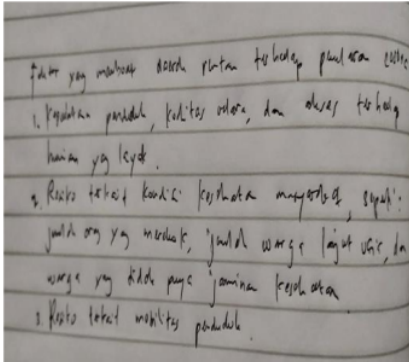 Faktor yg membuat daerah rentan terhadap paparan
1. Kepadatan penduduk, kualitas udara, dan akses terhadap
hunian yg layak.
2. Resiko terkait kondisi kesehatan masyarakat, seperti:
jumlah org yg merokok, jumlah warga lanjut usia, dan
warga yg tidak punya jaminan kesehatan
3. Resiko terkait mobilitas penduduk.